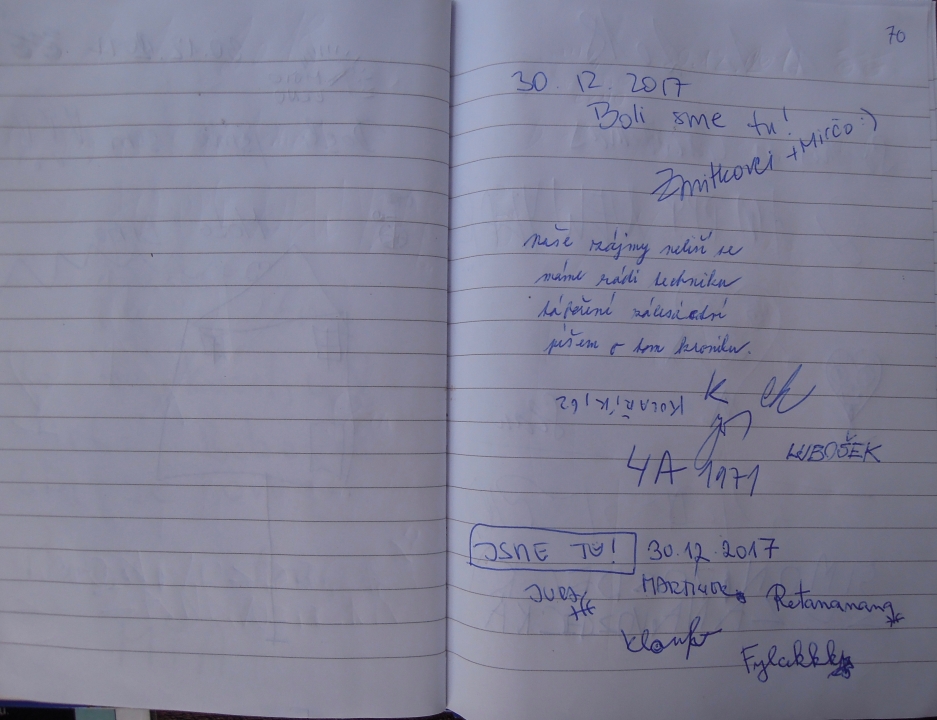 70
30. 12. 2017
Boli sme tu!
Zmitkovci + Mirčo :)
naše zájmy neliší se
máme rádi techniku
táboření zálesáctví
píšem o tom kroniku.
K
KOLAŘÍK, 62
LUBOŠEK
4A 1971
JSME TU! 30.12.2017
JURA
Retananang
Fylakkk